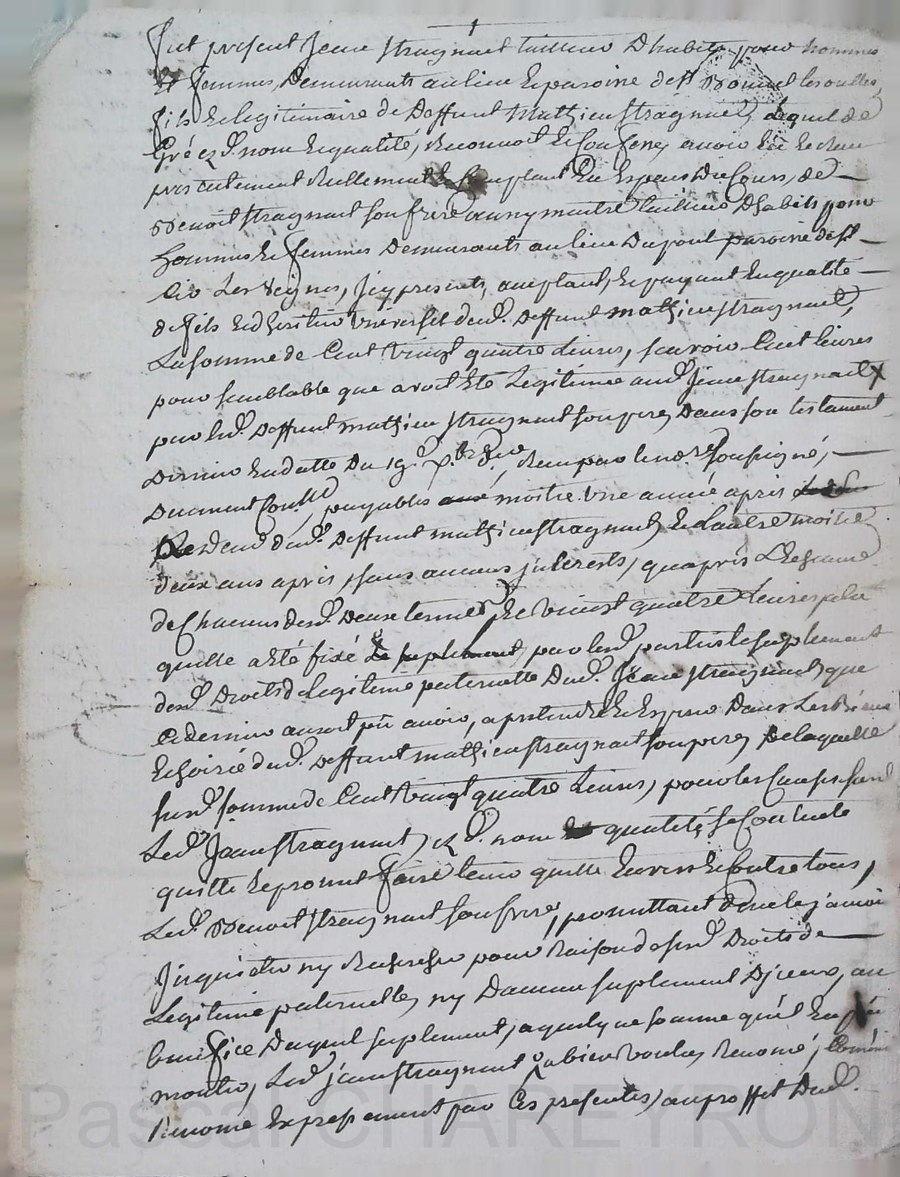 fut present Jean stragnart tailleur Dhabits pour hommes
et femmes, Demeurants au lieu Et paroise de st Bonnet les oulles,
fils Et legitimaire de Deffunt Mathieu stragnart, lequel de
Gré ez d. nom Et qualité, Reconnoit Et Confesse, avoir Eu Et Receu
presentement Reellement Et Comptant En Especes Du Cours, de
Benoit stragnart son frere aussy maitre tailleur Dhabits pour
hommes Et femmes Demeurants au lieu Du pont paroise de st
les Veignes, Icy present, acceptant, Et payant En qualité
de fils Et heritier universel dud. Deffunt mathieu stragnart,
La somme de Cent Vingt quatre Livres, scavoir Cent livres
pour semblable que avoit Eté Legitimée aud. Jean stragnart
par led. Deffunt mathieu stragnart son pere, Dans son testament
Dernier En datte Du 19e Receu par le no.re soussigné,
Duement Contollé, payables moitié une année apres
Deced dud. Deffunt mathieu stragnart, Et L'autre moitié
deux ans apres, sans aucuns jnterests, qu'apres L'Echeance
de Chacuns desd. Deux termes, Et Vingt quatre Livres
quelle a Eté fixé le suplement, par lesd. parties le suplement
desd. Droits de legitime paternelle Dud. Jean stragnart, que
Ce dernier auroit pû avoir, a pretendre Et Exiger Dans Les Biens
Et hoirie dud. Deffunt mathieu stragnart son pere, De laquelle
susd. somme de Cent Vingt quatre Livres, pour les Causes sus d.
Led. Jean stragnart, ez d. nom qualité, se Contente
quitte Et promet faire tenir quitte Envers Et Contre tous,
Led. Benoit stragnart son frere, promettant de ne le jamais
Inquieter ny Rechercher pour Raison de sesd. Droits de
Legitime paternelle, ny D'aucun suplement D'jceux, au
benefice Duquel suplement, a quelque somme qu'il En peu
monter, Led. jean stragnart a bien voulu Renoncé, Comme
Renonce Expressement par Ces presentes, au proffet Dud.
Pascal CHAREYRON